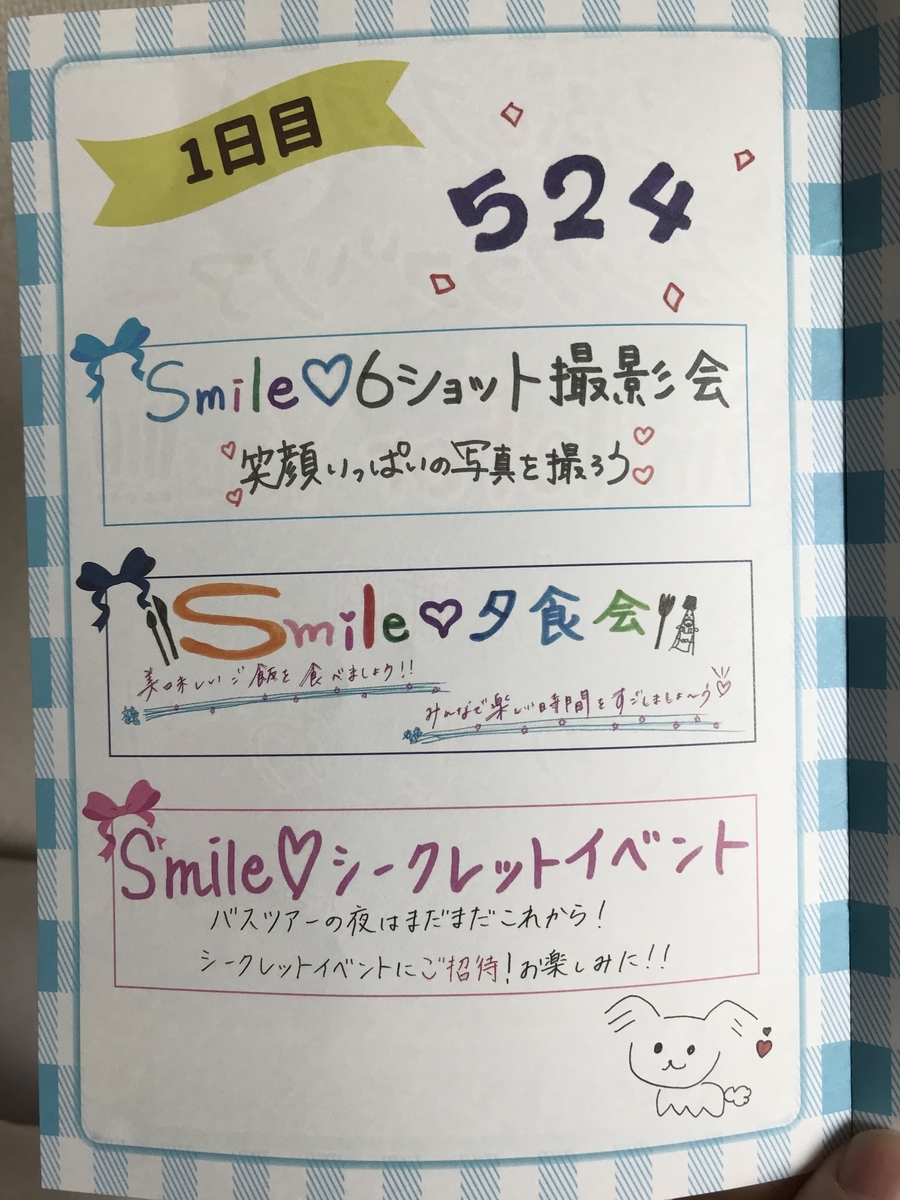 1日目
524
Smile♡6ショット撮影会
笑顔いっぱいの写真を撮ろう
Smile♡夕食会
美味しいご飯を食べましょう!!
みんなで楽しい時間をすごしましょ〜う♡
Smile♡シークレットイベント
バスツアーの夜はまだまだこれから!
シークレットイベントにご招待!お楽しみに!!